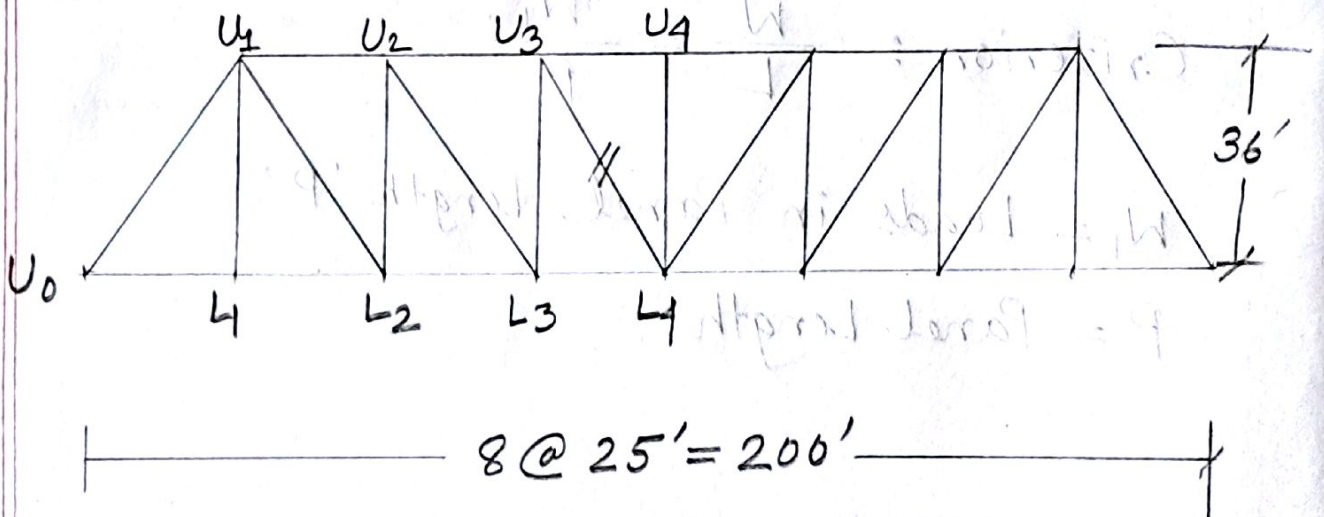 U1 U2 U3 U4
36'
U0
L1 L2 L3 L4
8 @ 25' = 200'